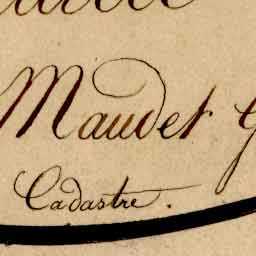 Maudet
Cadastre.